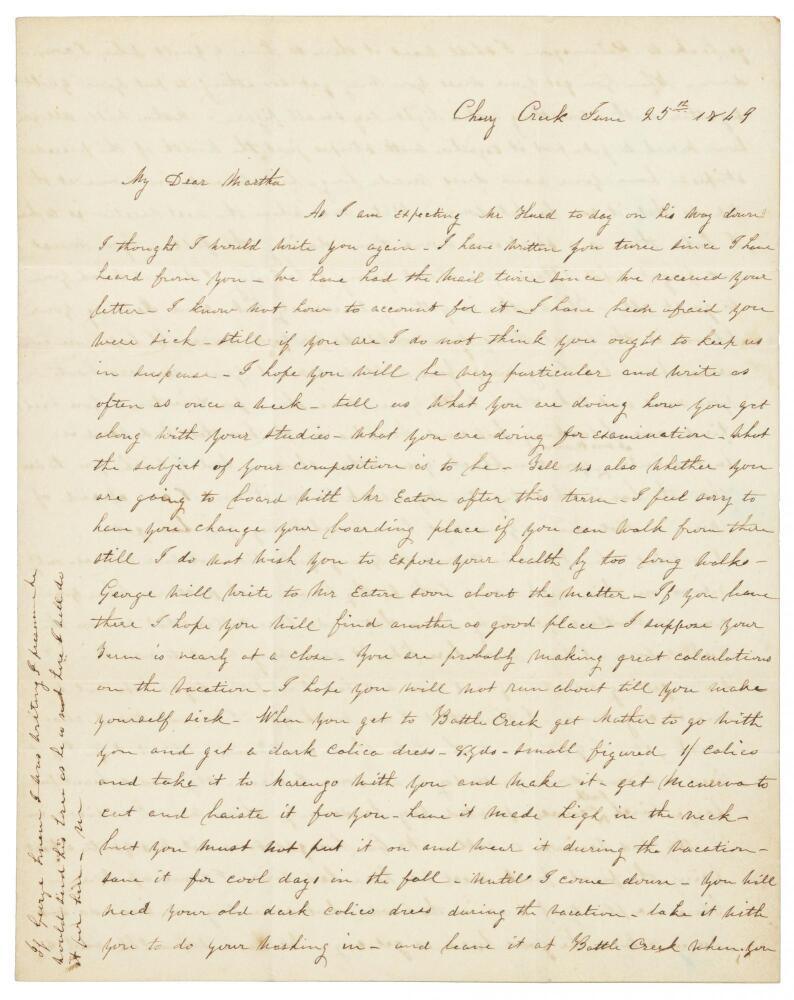 Chery Creek June 25th 1849
My Dear Martha
As I am expecting Mr Hurd to day on his way down
I thought I would write you again - I have written you twice since I have
heard from you - we have had the mail twice since we received your
letter - I know not how to account for it - I have been afraid you
were sick - still if you are I do not think you ought to keep us
in suspense - I hope you will be very particular and write as
often as once a week - tell us what you are doing how you get
along with your studies - what you are doing for examination - what
the subject of your composition is to be - Tell us also whether you
are going to board with Mr Eaton after this term - I feel sorry to
have you change your boarding place if you can walk from there
still I do not wish you to expose your health by too long walks -
George will write to Mr Eaton soon about the matter - If you leave
there I hope you will find another as good place - I suppose your
Term is nearly at a close - you are probably making great calculations
on the vacation - I hope you will not run about till you make
yourself sick - When you get to Battle Creek get Mother to go with
you and get a dark calico dress - yds - small figured 1/ calico
and take it to Marengo with you and make it - get Manerva to
cut and baiste it for you - have it made high in the neck -
but you must not put it on and wear it during the vacation -
save it for cool days in the fall - until I come down - you will
need your old dark calico dress during the vacation - take it with
you to do your washing in - and leave it at Battle Creek when you
If George knew I was writing I presume he
would send his love as he is not here I will do
it for him -